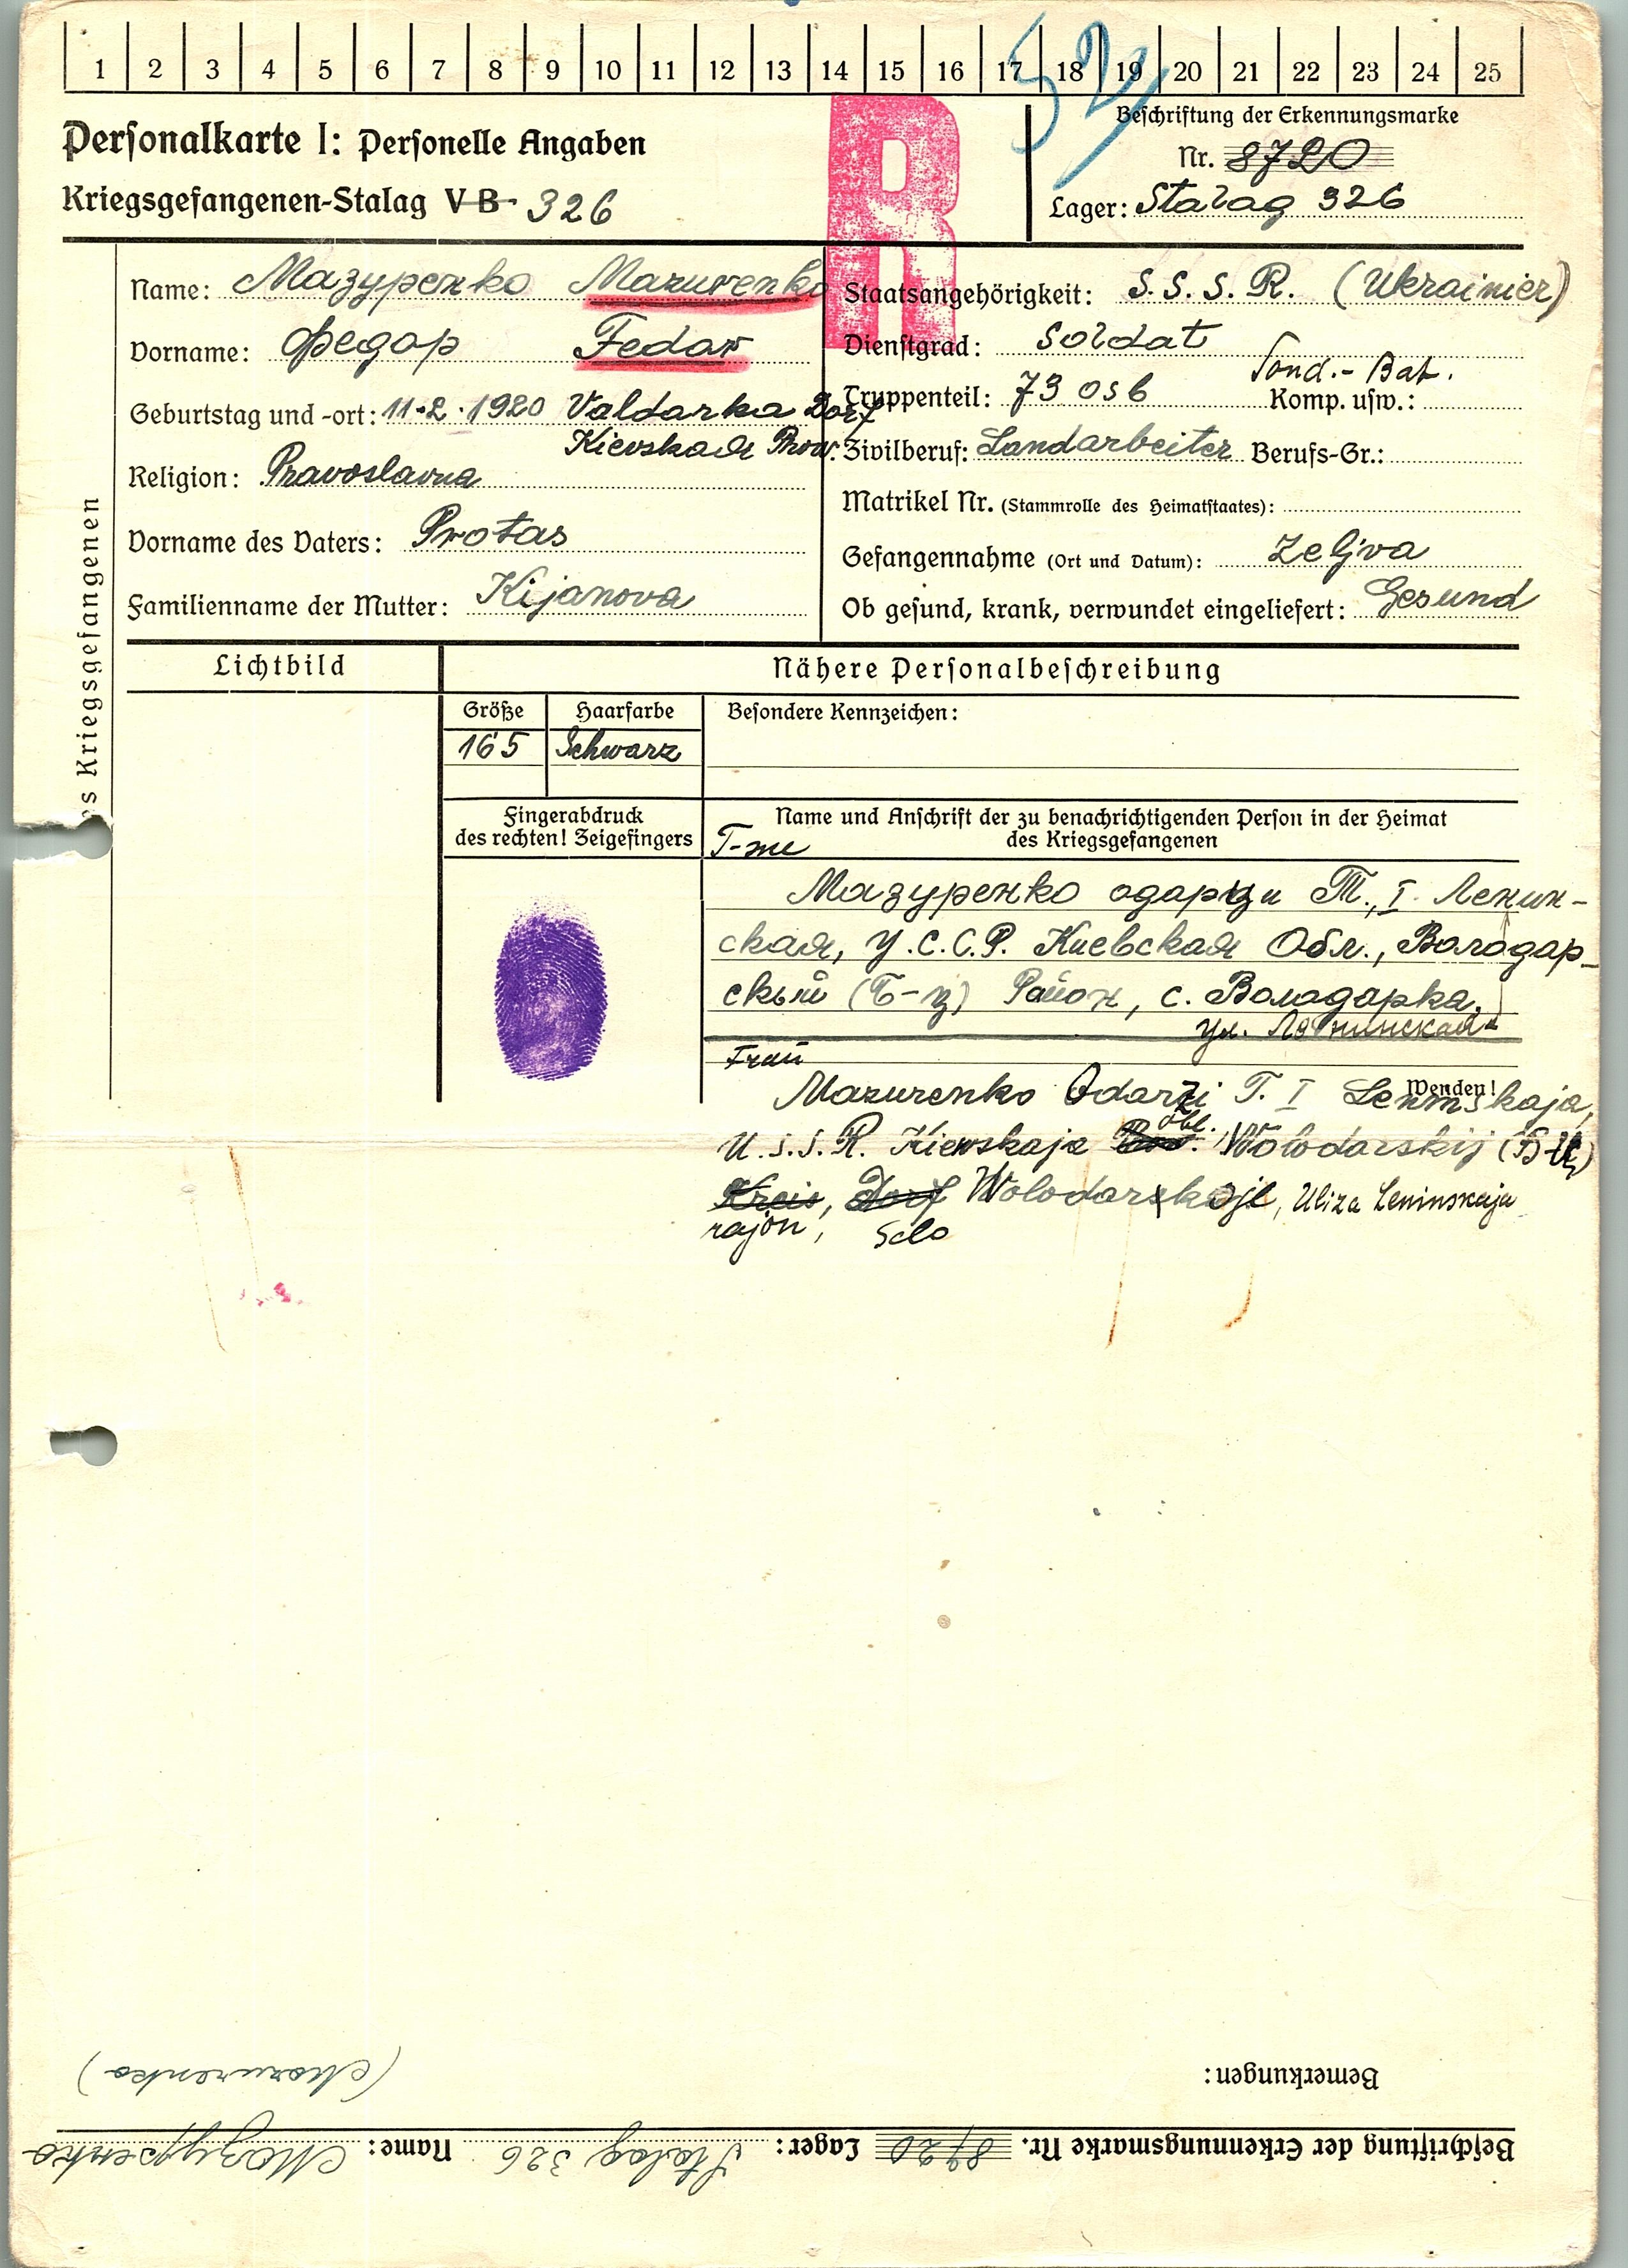 1 2 3 4 5 6 7 8 9 10 11 12 13 14 15 16 17 18 19 20 21 22 23 24 25
52
R
Personalkarte I: Personelle Angaben
Kriegsgefangenen-Stalag V B 326
Beschriftung der Erkennungsmarke
Nr. 8720
Lager: Stalag 326
Name: Мазуренко Mazurenko
Vorname: Федор Fedor
Geburtstag und -ort: 11.2.1920 Valdarka Dorf
Kievskaя Prow.
Religion: Pravoslavna
Vorname des Vaters: Protas
Familienname der Mutter: Kijanova
Staatsangehörigkeit: S.S.S.R. (Ukrainier)
Dienstgrad: Soldat
Truppenteil: 73 osb Sond.-Bat. Komp. usw.:
Zivilberuf: Landarbeiter Berufs-Gr.:
Matrikel Nr. (Stammrolle des Heimatstaates):
Gefangennahme (Ort und Datum): Zeljva
Ob gesund, krank, verwundet eingeliefert: Gesund
es Kriegsgefangenen
Lichtbild
Nähere Personalbeschreibung
Größe Haarfarbe Besondere Kennzeichen:
165 Schwarz
Fingerabdruck
des rechten! Zeigefingers
Name und Anschrift der zu benachrichtigenden Person in der Heimat
des Kriegsgefangenen
Мазуренко Одарци Т., I Ленин-
ская, У.С.С.Р. Киевская Обл., Володар-
скый (Б-ц) Район, с. Володарка,
ул. Ленинская
Frau
Wenden!
Mazurenko Odarzi T. I Leninskaja,
U.S.S.R. Kiewskaja obl., Wolodarskij (B-Z)
Kreis, Dorf Wolodarskoje, Uliza Leninskaja
rajon, Selo
Bemerkungen:
(Mazurenko)
Beschriftung der Erkennungsmarke Nr. 8720 Lager: Stalag 326 Name: Мазуренко